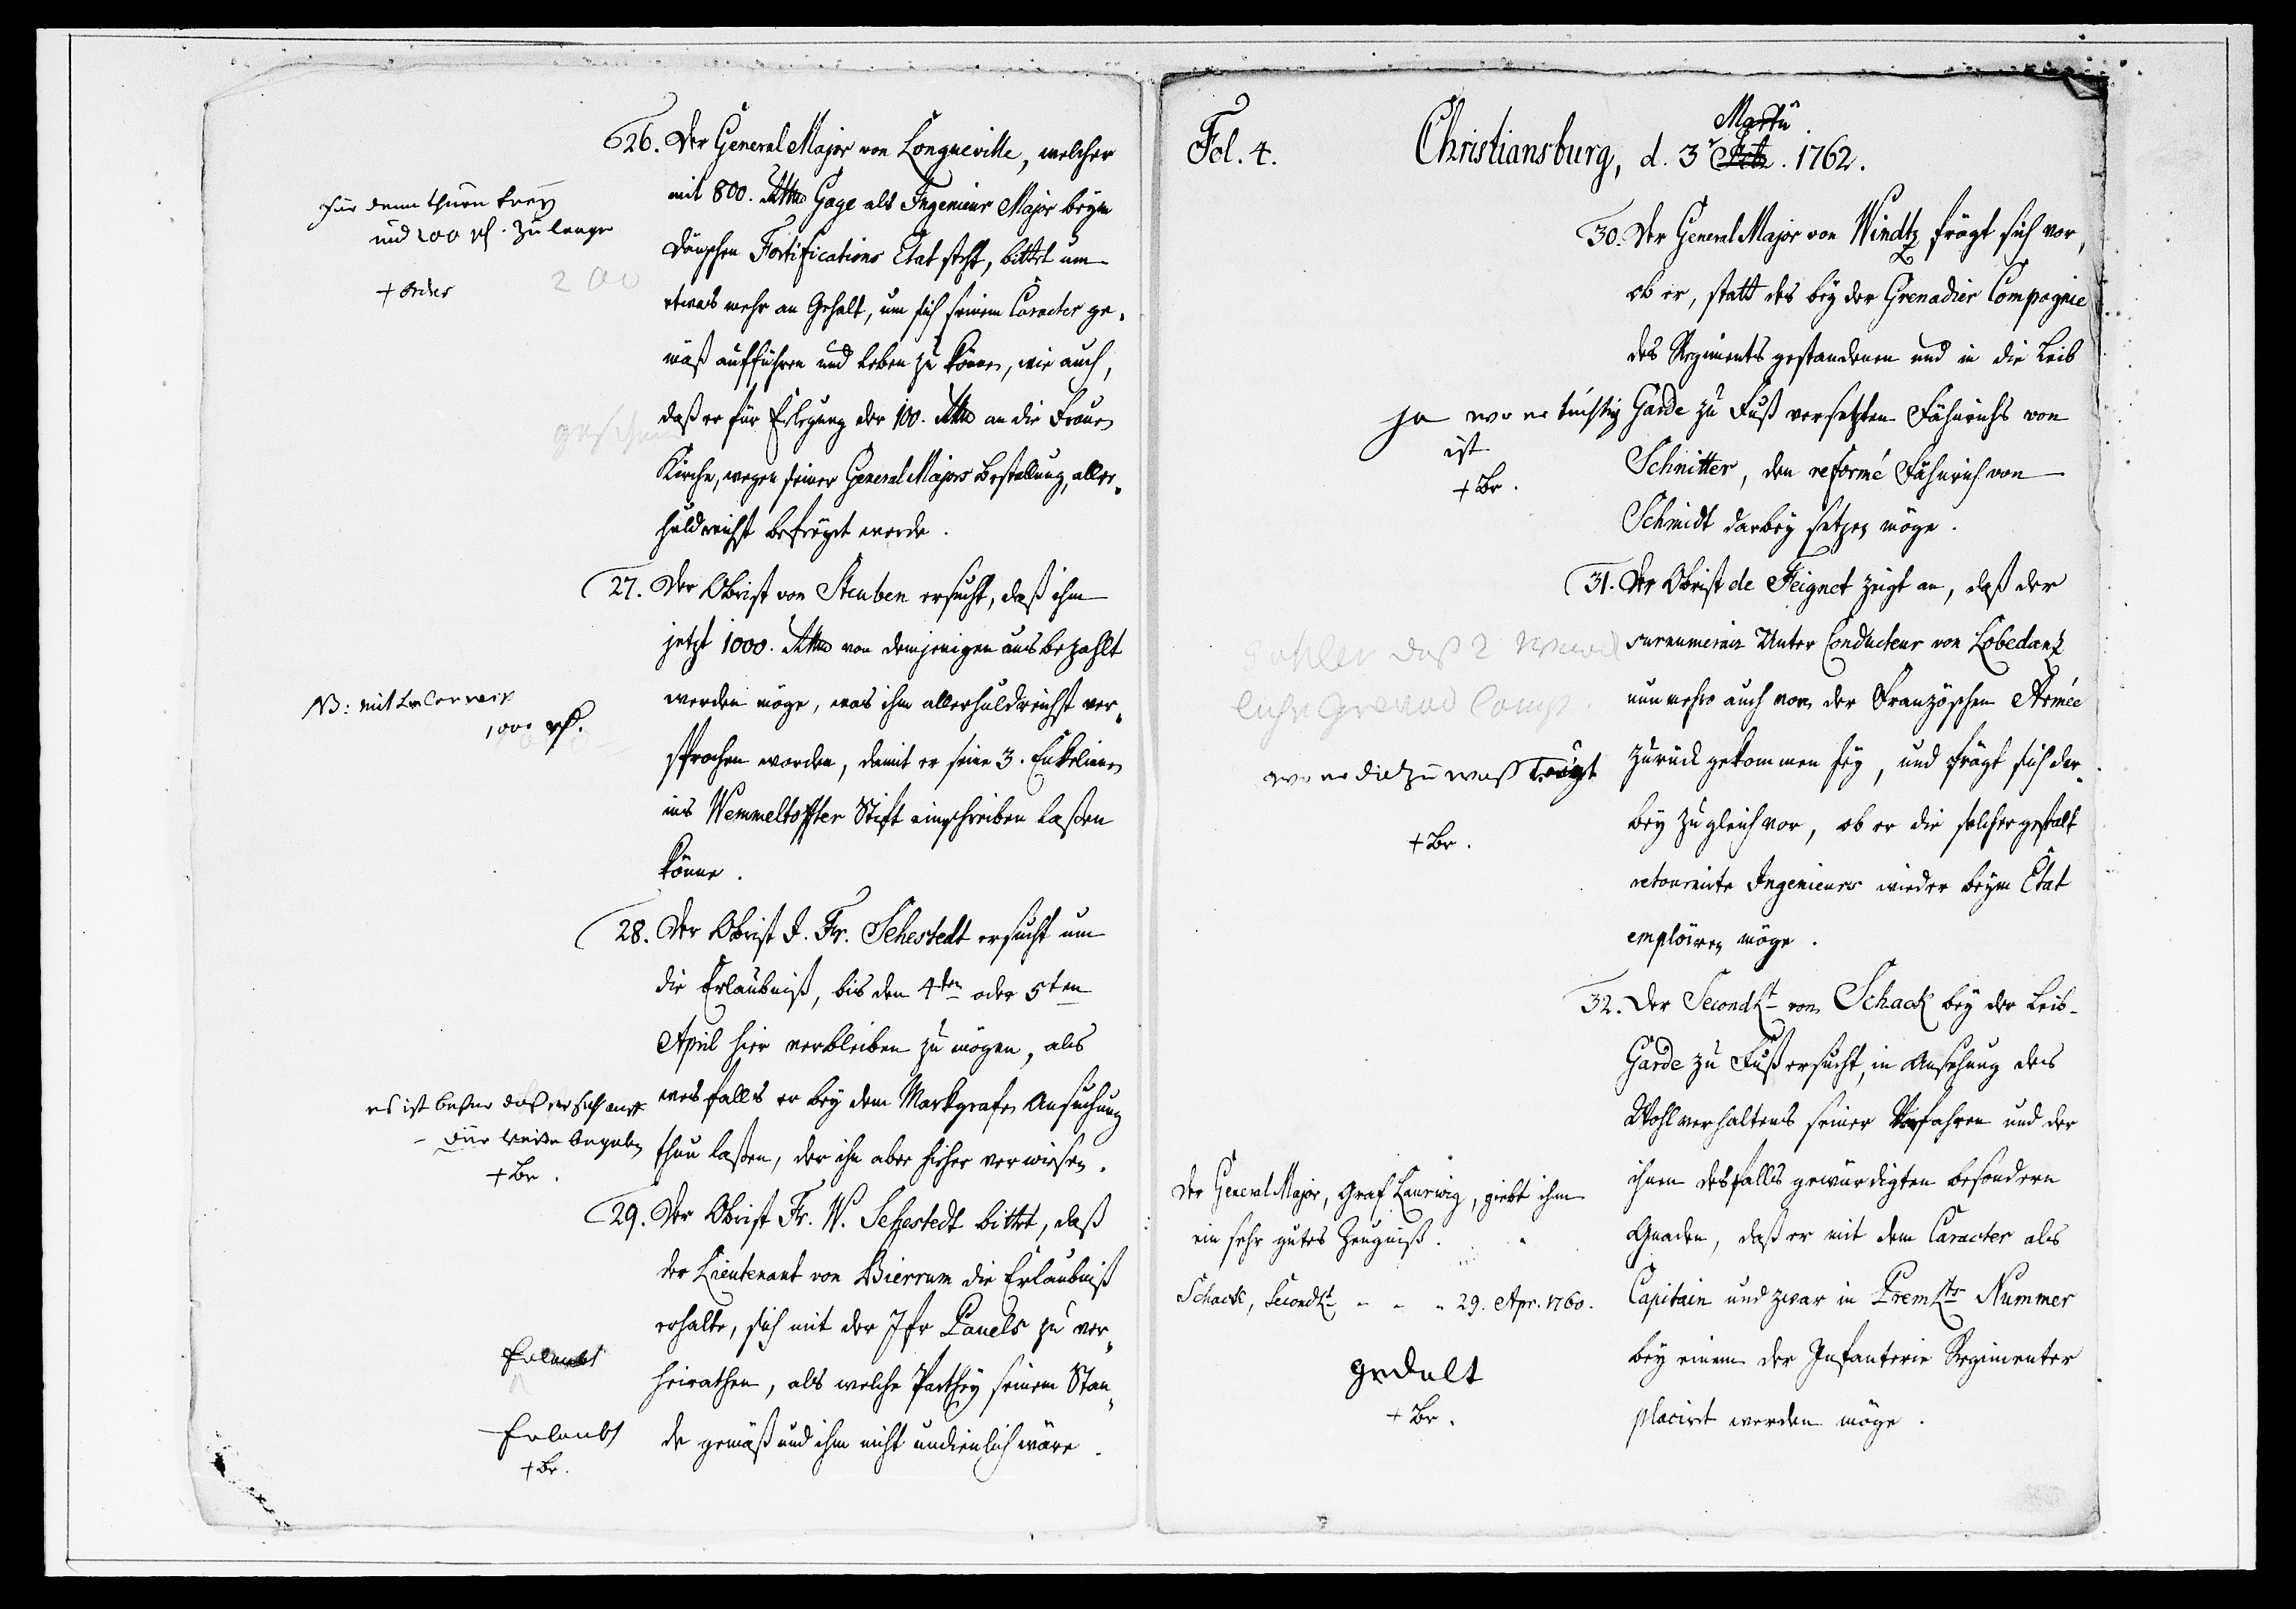 26. Der General Major von Longueville, welcher
mit 800. Rthlr Gage als Ingenieur Major beym
Dänschen Fortifications Etat steht, bittet um
etwas mehr an Gehalt, um sich seinem Caracter ge¬
mäß aufführen und leben zu können, wie auch,
daß er für Erlegung der 100. Rthlr an die Frauen
Kirche, wegen seiner General Majors Bestallung, aller¬
huldreichst befreyet werde.
für denn thurn frey
und 200 rh. zu lange
+ Order
200
27. Der Obrist von Steuben ersucht, daß ihm
jetzt 1000. Rthlr von demjenigen ausbezahlt
werden möge, was ihm allerhuldreichst ver¬
sprochen worden, damit er seine 3. Enkelinnen
ins Wemmeltoffter Stift einschreiben laßen
könne.
NB: mit
1000 rh.
28. Der Obrist J. Fr. Sehestedt ersucht um
die Erlaubniß, bis den 4ten oder 5ten
April hier verbleiben zu mögen, als
wesfalls er bey dem Markgrafen Ansuchung
thun laßen, der ihn aber hieher verwiesen.
es ist beßer daß er sich auf
die Reise begeben
+ Br.
29. Der Obrist Fr. W. Sehestedt bittet, daß
der Lieutenant von Bierrum die Erlaubniß
erhalte, sich mit der Jfr Pauels zu ver¬
heirathen, als welche Parthey seinem Stan¬
de gemäß und ihm nicht undienlich wäre.
Erlaubt
Erlaubt
+ Br.
Fol. 4. Christiansburg, d. 3r Martii 1762.
30. Der General Major von Windtz frägt sich vor,
ob er, statt des bey der Grenadier Compagnie
des Regiments gestandenen und in die Leib
Garde zu Fuß versetzten Fähnrichs von
Schnitter, den reformé Fähnrich von
Schmidt darbey setzen möge.
ja wo er tüchtig
ist
+ Br.
31. Der Obrist de Peignet zeigt an, daß der
surnumerair Unter Conducteur von Lobedantz
nunmehro auch von der Französchen Armée
zurück gekommen sey, und frägt sich dar¬
bey zugleich vor, ob er die solchergestalt
retournirte Ingenieurs wieder beym Etat
emploiren möge.
wo er die zu was taugt
+ Br.
32. Der SecondLt von Schack bey der Leib-
Garde zu Fuß ersucht, in Ansehung des
Wohlverhaltens seiner Vorfahren und der
ihnen desfalls gewürdigten besondern
Gnaden, daß er mit dem Caracter als
Capitain und zwar in PremLts Nummer
bey einem der Infanterie Regimenter
placirt werden möge.
Der General Major, Graf Laurwig, giebt ihm
ein sehr gutes Zeugniß.
Schack, SecondLt - - - 29. Apr. 1760.
gedult
+ Br.